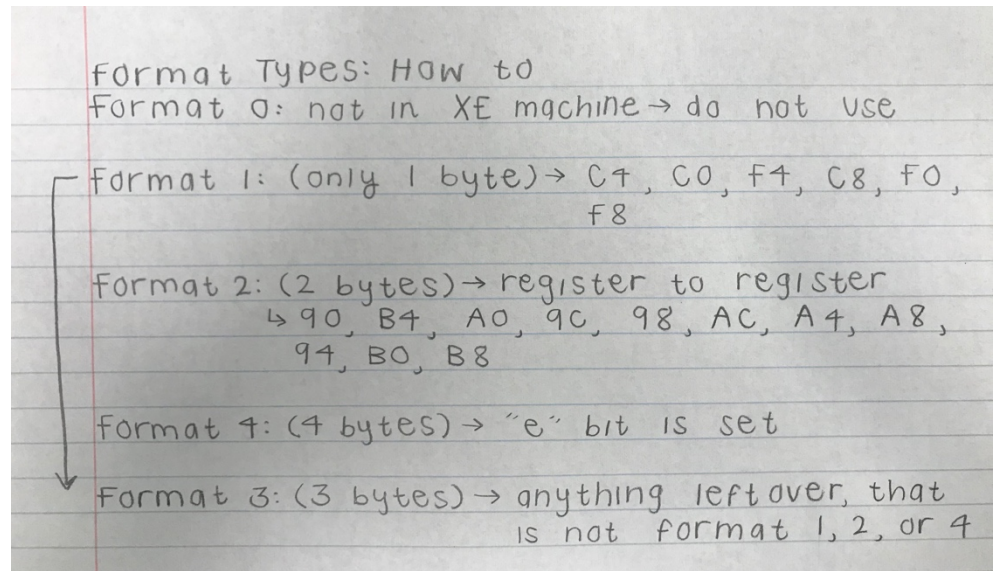 Format Types: How to
Format 0: not in XE machine → do not use
Format 1: (only 1 byte) → C4, C0, F4, C8, F0,
F8
Format 2: (2 bytes) → register to register
↳ 90, B4, A0, 9C, 98, AC, A4, A8,
94, B0, B8
Format 4: (4 bytes) → "e" bit is set
Format 3: (3 bytes) → anything left over, that
is not format 1, 2, or 4